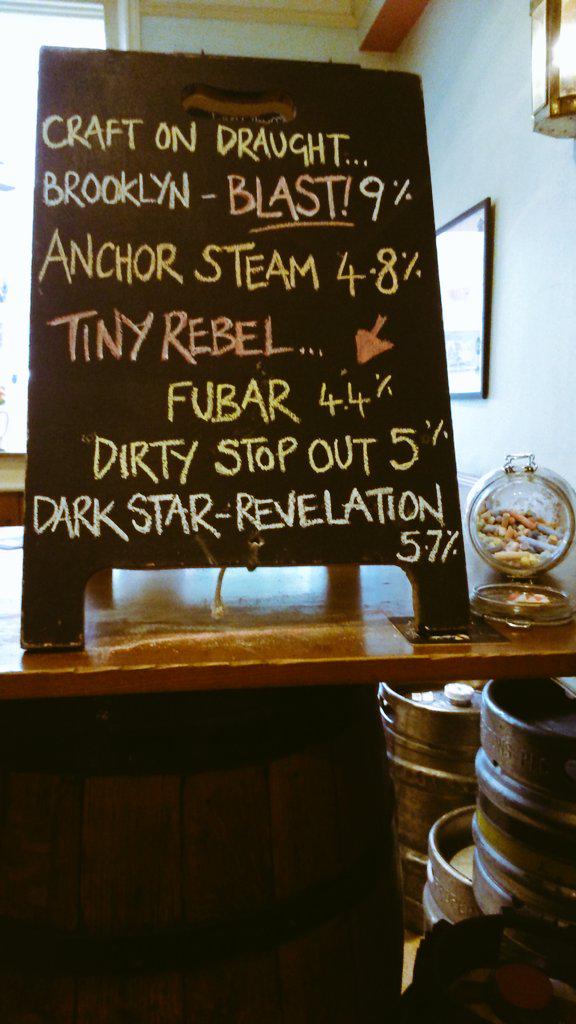 CRAFT ON DRAUGHT...
BROOKLYN - BLAST! 9%
ANCHOR STEAM 4.8%
TINY REBEL...
FUBAR 4.4%
DIRTY STOP OUT 5%
DARK STAR-REVELATION
5.7%